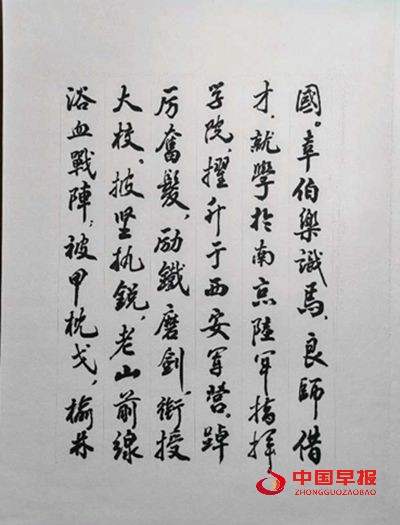 國。幸伯樂識馬,良師借
才,就學於南京陸军指揮
学院,擢升于西安军营。踔
厉奮髮,励鐵磨劍,銜授
大校。披坚执銳,老山前線
浴血戰陣;被甲枕戈,榆林
中国早报
ZHONGGUOZAOBAO